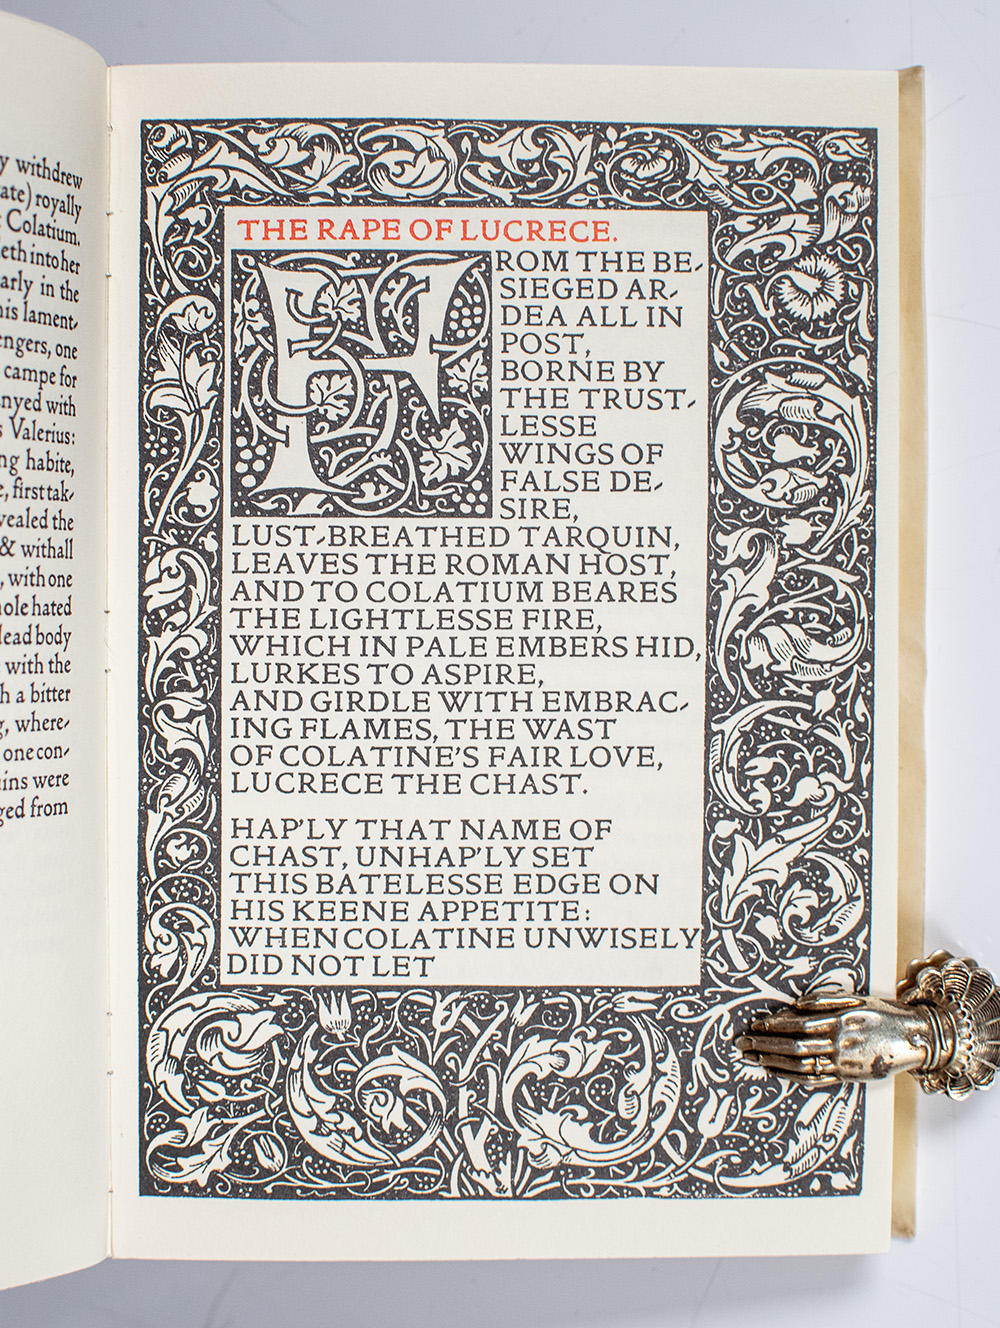 y withdrew
ate) royally
Colatium.
eth into her
arly in the
his lament-
engers, one
campe for
nyed with
s Valerius:
ng habite,
e, first tak-
vealed the
& withall
, with one
ole hated
dead body
with the
h a bitter
g, where-
one con-
uins were
ged from
THE RAPE OF LUCRECE.
FROM THE BE-
SIEGED AR-
DEA ALL IN
POST,
BORNE BY
THE TRUST-
LESSE
WINGS OF
FALSE DE-
SIRE,
LUST-BREATHED TARQUIN,
LEAVES THE ROMAN HOST,
AND TO COLATIUM BEARES
THE LIGHTLESSE FIRE,
WHICH IN PALE EMBERS HID,
LURKES TO ASPIRE,
AND GIRDLE WITH EMBRAC-
ING FLAMES, THE WAST
OF COLATINE'S FAIR LOVE,
LUCRECE THE CHAST.
HAP'LY THAT NAME OF
CHAST, UNHAP'LY SET
THIS BATELESSE EDGE ON
HIS KEENE APPETITE:
WHEN COLATINE UNWISELY
DID NOT LET